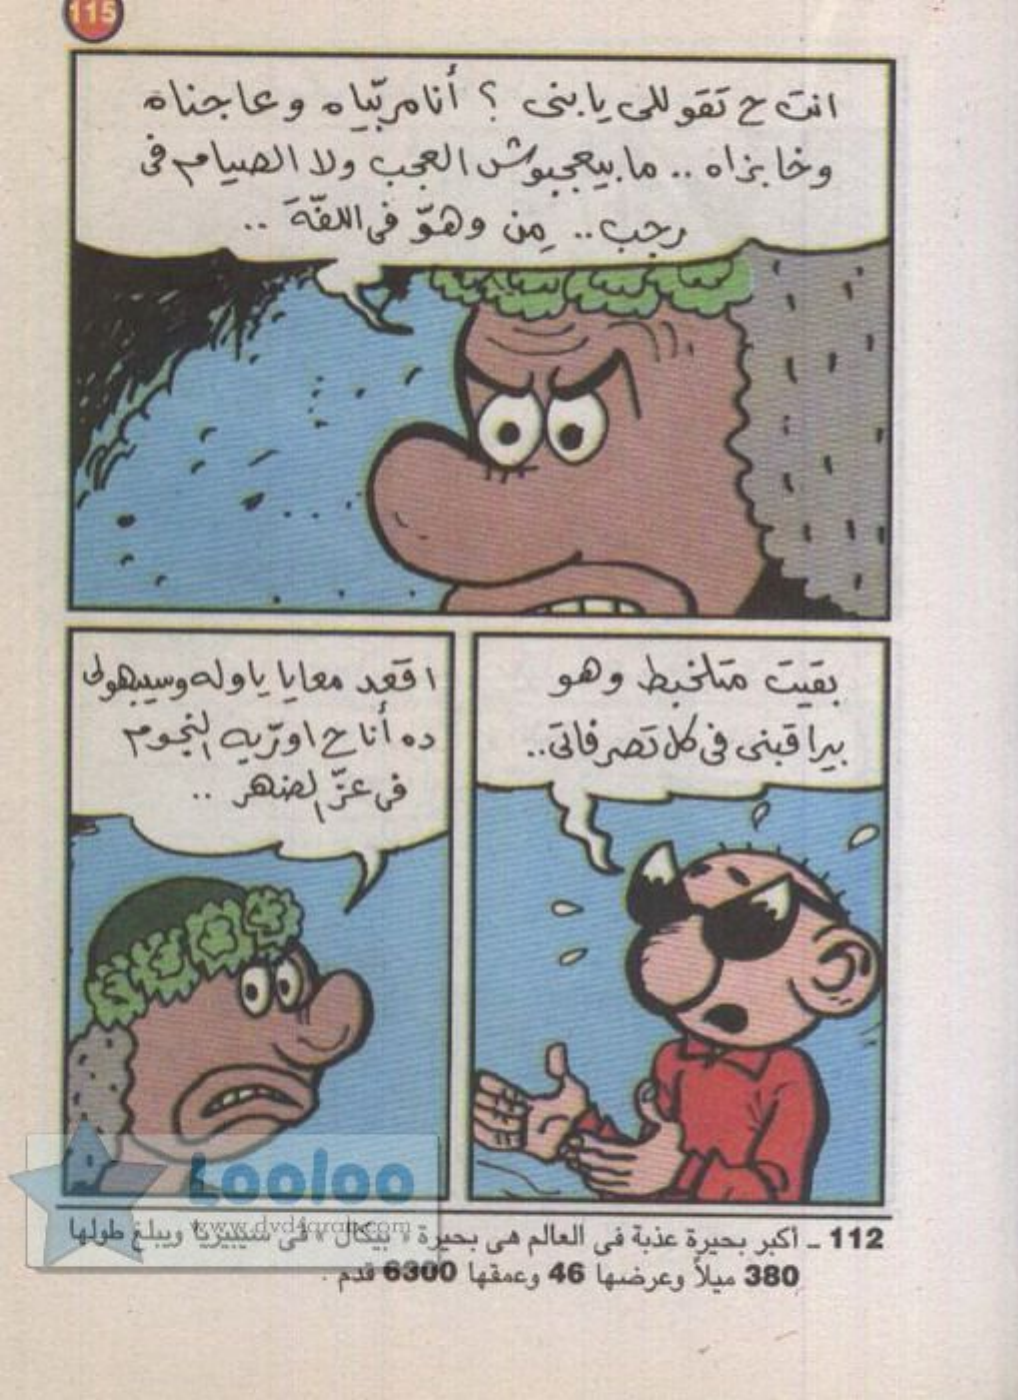 115
انت ح تقوللى يابنى ؟ أنا مربّياه وعاجناه
وخابزاه .. مابيعجبوش العجب ولا الصيام فى
رجب .. مِن وهوّ فى اللفّة ..
بقيت متلخبط وهو
بيراقبنى فى كل تصرفاتى..
اقعد معايا ياوله وسيبهولى
ده أنا ح اورّيه النجوم
فى عزّ الضهر ..
112 ـ أكبر بحيرة عذبة فى العالم هى بحيرة « بيكال » فى سيبيريا ويبلغ طولها
380 ميلاً وعرضها 46 وعمقها 6300 قدم .
Looloo
www.dvd4arab.com